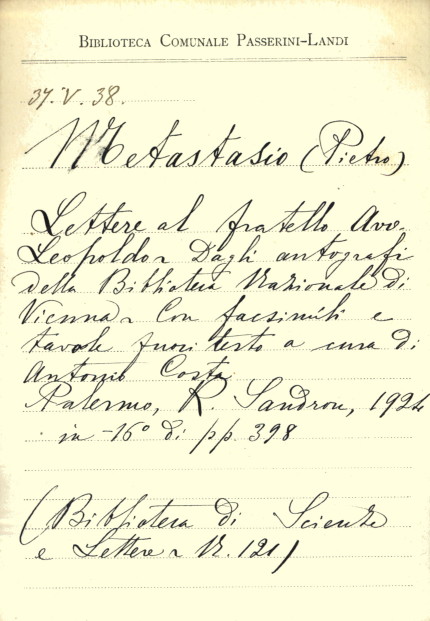 BIBLIOTECA COMUNALE PASSERINI-LANDI
37.V.38.
Metastasio (Pietro)
Lettere al fratello Avv.
Leopoldo - Dagli autografi
della Biblioteca Nazionale di
Vienna - Con facsimili e
tavole fuori testo a cura di
Antonio Costa
Palermo, R. Sandron, 1924
in-16° di pp. 398
(Biblioteca di Scienze
e Lettere - N. 121)